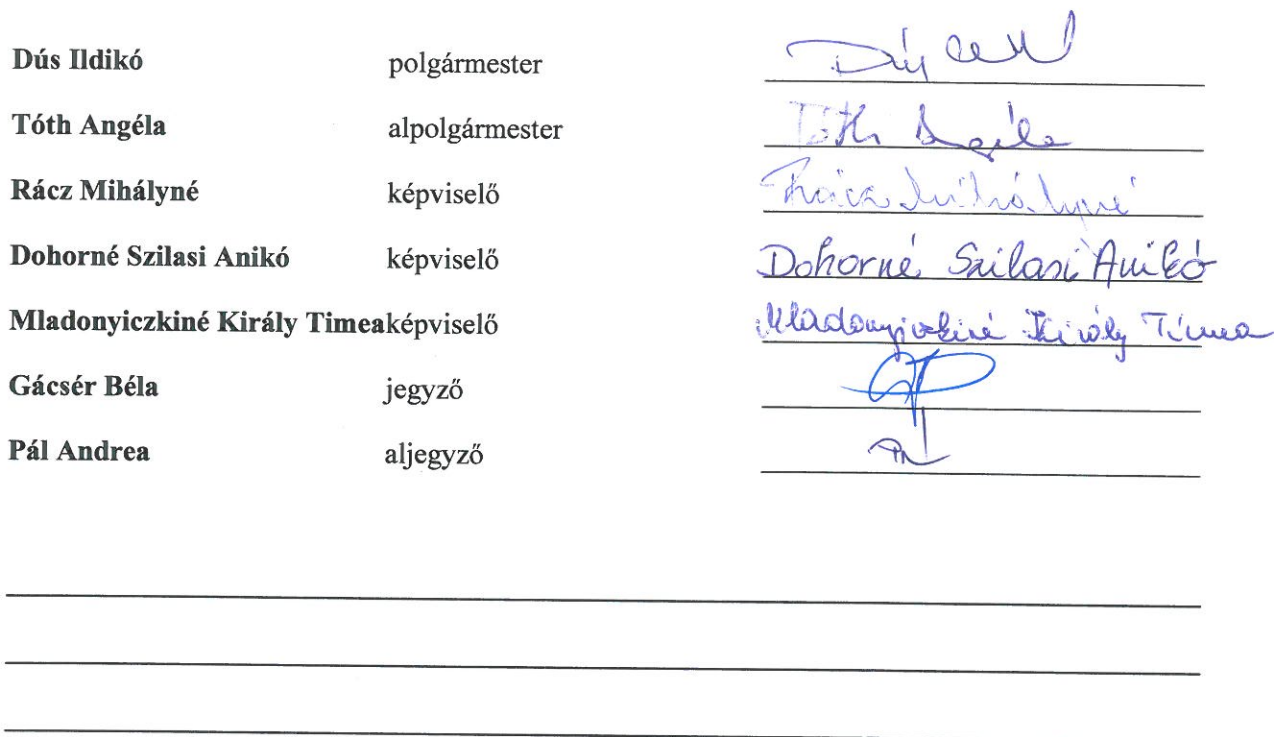 Dús Ildikó polgármester
Tóth Angéla alpolgármester Tóth Angéla
Rácz Mihályné képviselő Rácz Mihályné
Dohorné Szilasi Anikó képviselő Dohorné Szilasi Anikó
Mladonyiczkiné Király Timeaképviselő Mladonyiczkiné Király Tímea
Gácsér Béla jegyző
Pál Andrea aljegyző